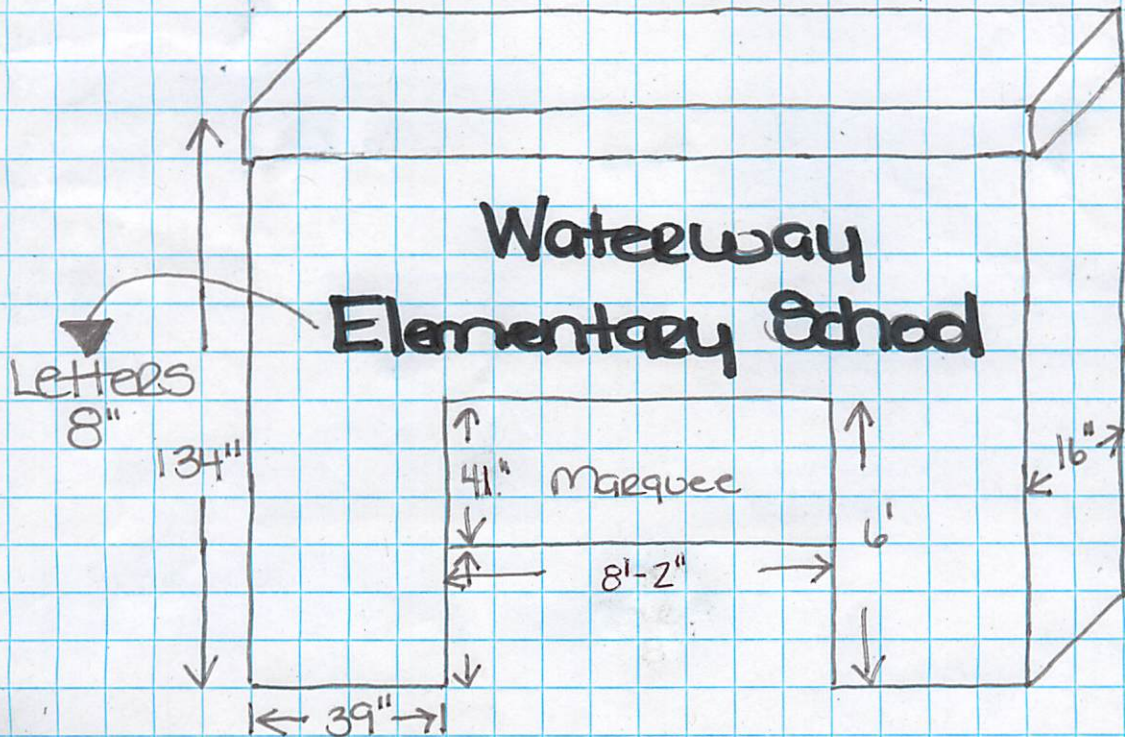 Waterway
Elementary School
Letters
8"
134"
41"
Marquee
16"
6'
8'-2"
39"